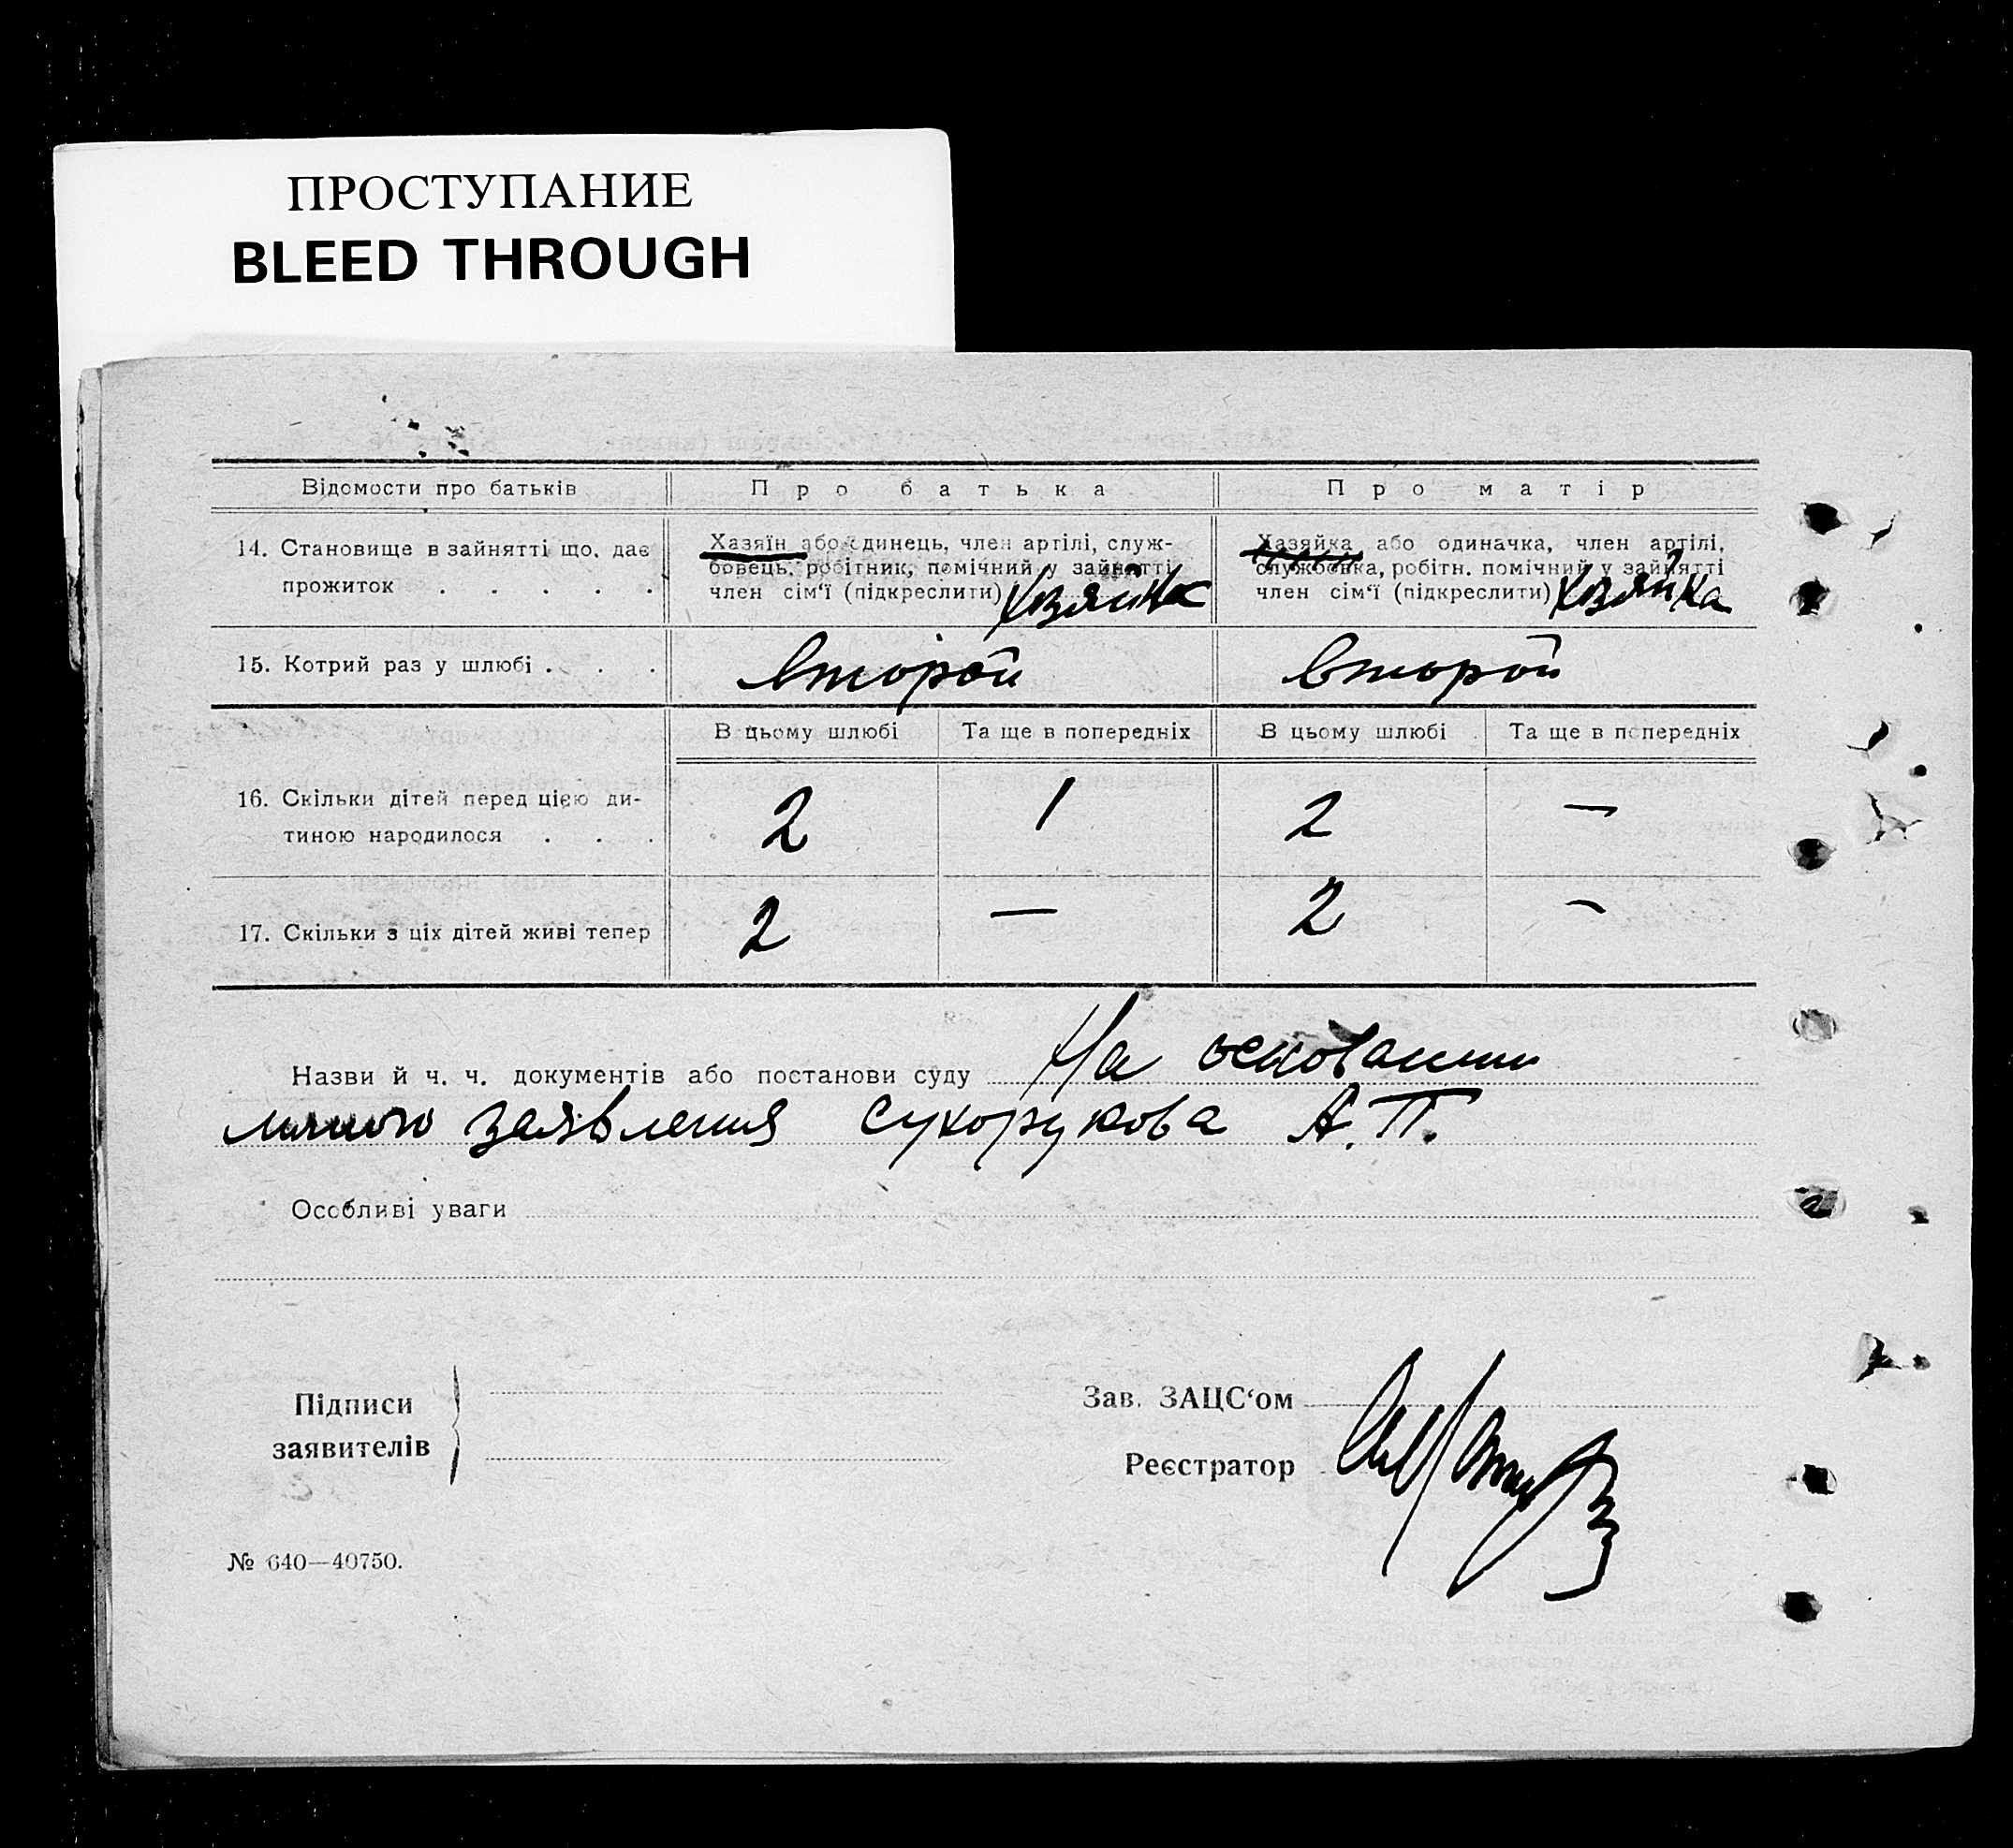 ПРОСТУПАНИЕ
BLEED THROUGH
Відомости про батьків Про батька Про матір
14. Становище в зайнятті що, дає прожиток . . . . .
Хазяїн або єдинець, член артілі, служ-
бовець, робітник, помічний у зайнятті
член сім'ї (підкреслити)
Хазяйка або одиначка, член артілі,
службовка, робітн. помічний у зайнятті
член сім'ї (підкреслити) Хозяйка
15. Котрий раз у шлюбі . . . второй второй
В цьому шлюбі Та ще в попередніх В цьому шлюбі Та ще в попередніх
16. Скільки дітей перед цією ди-
тиною народилося . . . 2 1 2 —
17. Скільки з ціх дітей живі тепер 2 — 2 —
Назви й ч. ч. документів або постанови суду На основании
личного заявления Сухорукова А.П.
Особливі уваги
Підписи
заявителів
Зав. ЗАЦС‘ом
Реєстратор
№ 640—40750.